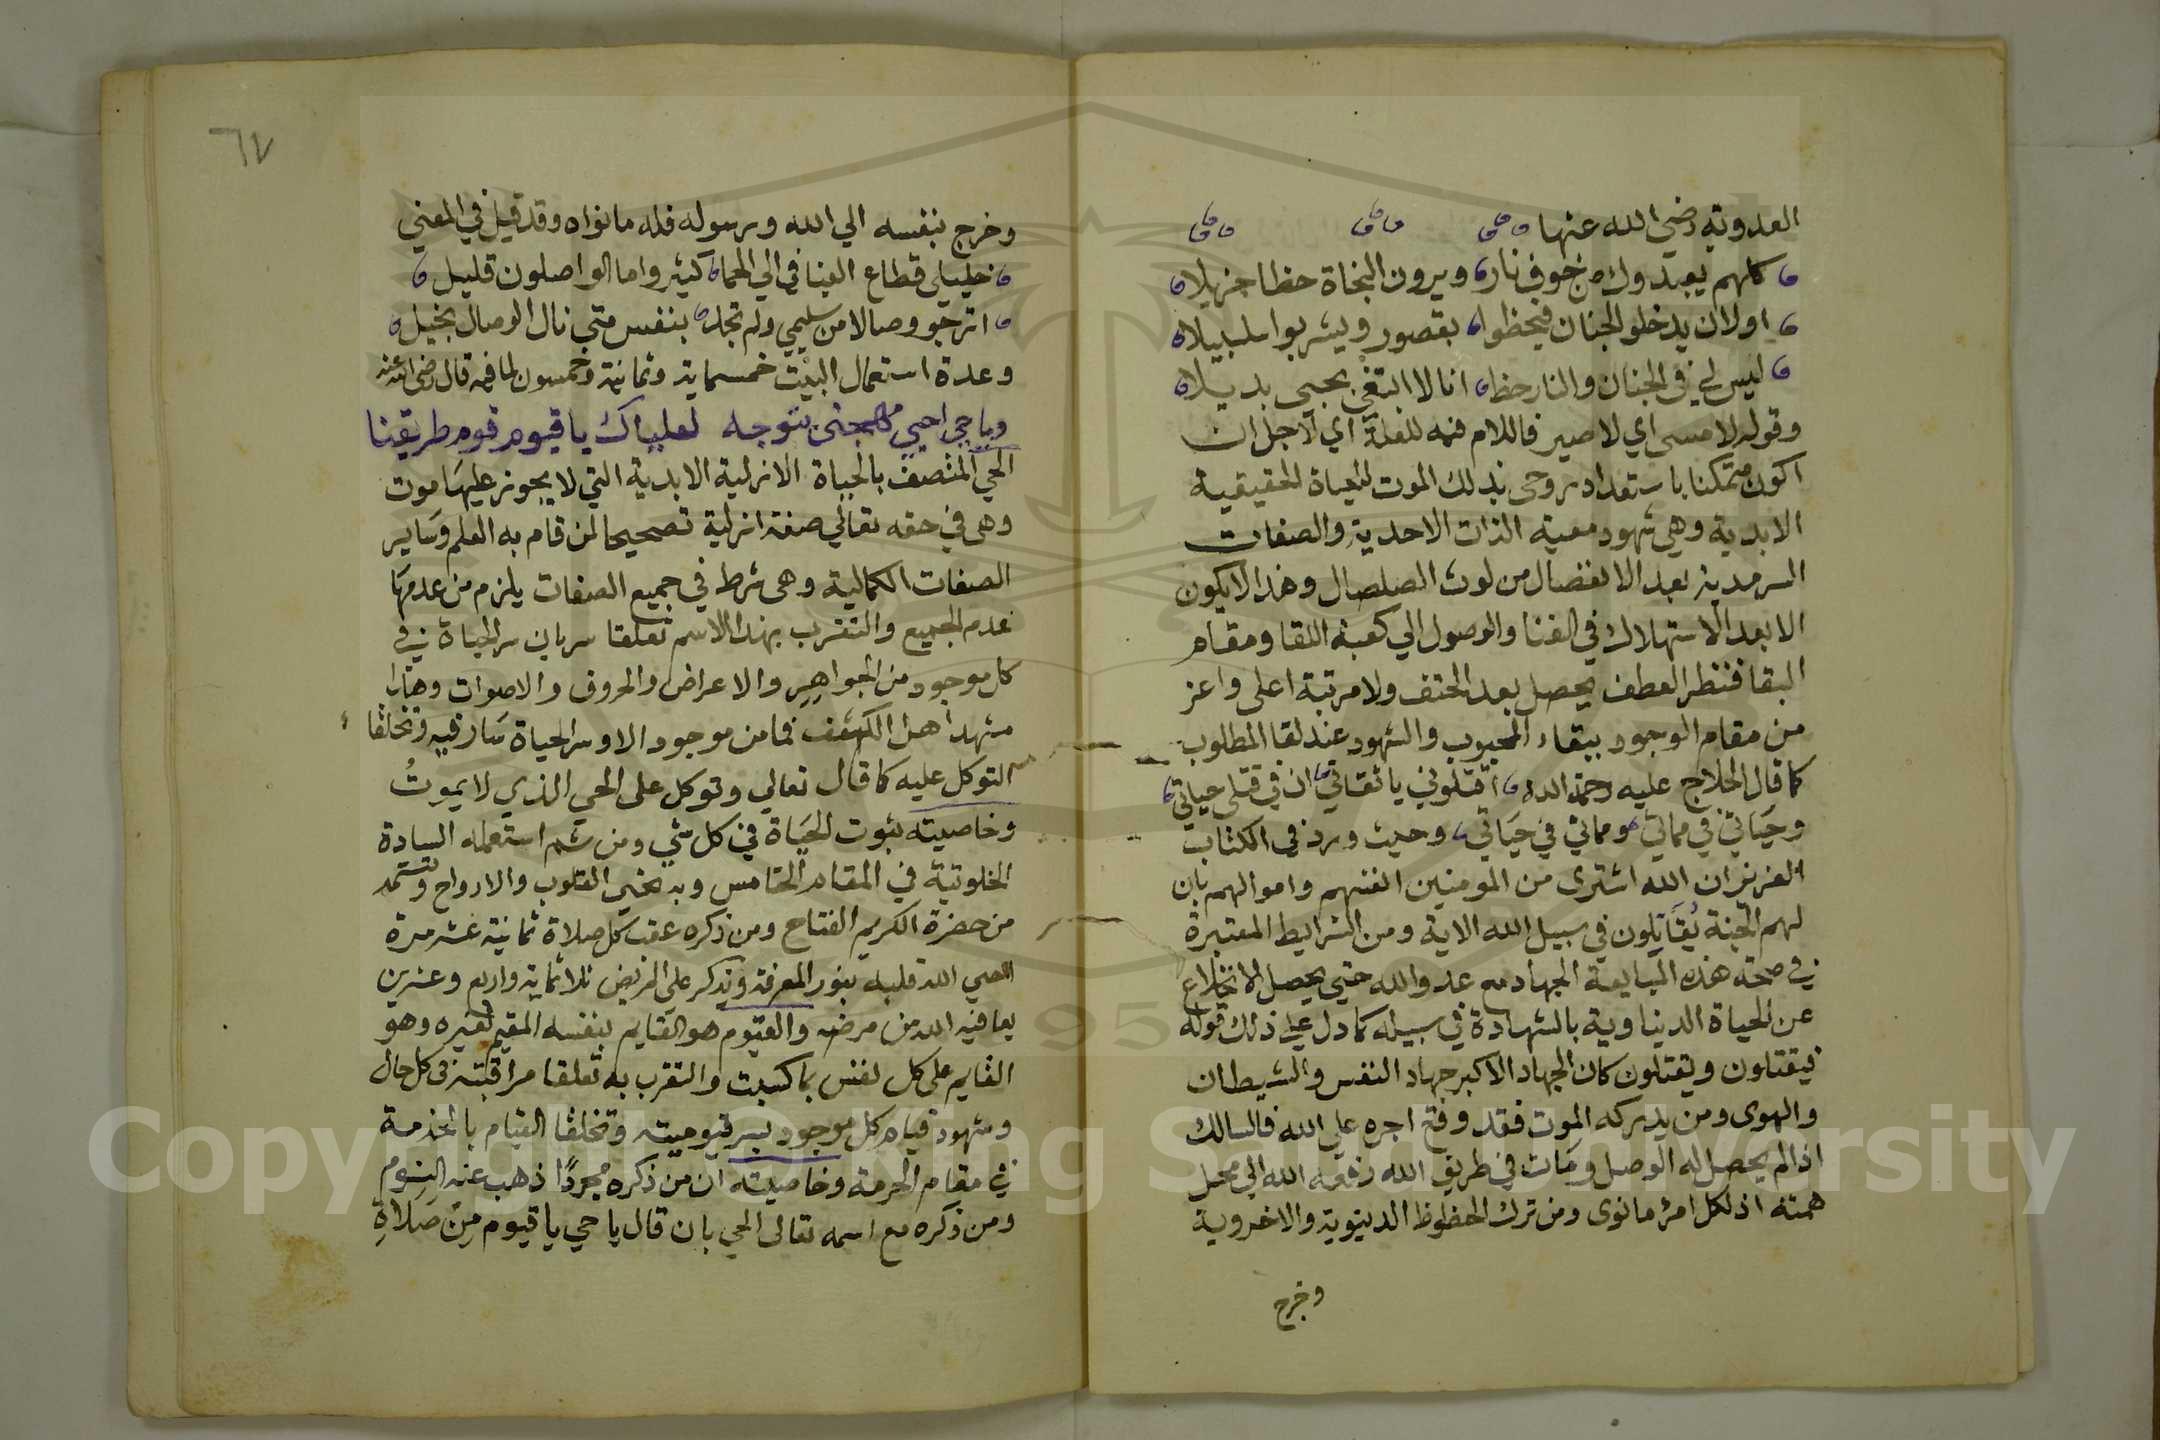 العدوية رضي الله عنها
كلهم يعبدوك من خوف نار ويرون النجاة حظا جزيلا
او لان يدخلو الجنان فيحظوا بقصور ويشربوا سلسبيلا
ليس لي في الجنان والنار حظا انا لا ابتغي بحبي بديلا
وقوله لامسي اي لاصير فاللام فيه للعلة اي لاجل ان
اكون متمكنا باستعداد روحي بذلك الموت للحياة الحقيقية
الابدية وهي شهود معية الذات الاحدية والصفات
السرمدية بعد الانفصال من لوث الصلصال وهذا لا يكون
الا بعد الاستهلاك في الفنا والوصول الي كعبة اللقا ومقام
البقا فنظر العطف يحصل بعد الحتف ولا مرتبة اعلى واعز
من مقام الوجود ببقاء المحبوب والشهود عند لقا المطلوب
كما قال الحلاج عليه رحمة الله اقتلوني يا ثقاتي ان في قتلى حياتي
وحياتي في مماتي ومماتي في حياتي وحيث ورد في الكتاب
العزيز ان الله اشترى من المومنين انفسهم واموالهم بان
لهم الجنة يقاتلون في سبيل الله الاية ومن الشرايط المعتبرة
في صحة هذه المبايعة الجهاد مع عدو الله حتي يحصل الانخلاع
عن الحياة الدنياوية بالشهادة في سبيله كما دل على ذلك قوله
فيقتلون ويقتلون كان الجهاد الاكبر جهاد النفس والشيطان
والهوى ومن يدركه الموت فقد وقع اجره على الله فالسالك
اذا لم يحصل له الوصل ومات في طريق الله رفعه الله الي محل
همته اذ لكل امرء ما نوى ومن ترك الحظوظ الدينوية والاخروية
وخرج
٦٧
وخرج بنفسه الي الله ورسوله فله ما نواه وقد قيل في المعني
خليلي قطاع الفيافي الي الحما كثير واما الواصلون قليل
اترجو وصالا من سليمي ولم تجد بنفس متي نال الوصال بخيل
وعدة استعمال البيت خمسماية وثمانية وخمسون لما فيه قال رضى الله عنه
ويا حي احيي مهجتى بتوجه لعلياك يا قيوم قوم طريقنا
الحي المتصف بالحياة الازلية الابدية التي لا يجوز عليها موت
وهي في حقه تعالي صفة ازلية تصحيحا لمن قام به العلم وساير
الصفات الكمالية وهي شرط في جميع الصفات يلزم من عدمها
عدم الجميع والتقرب بهذا الاسم تعلقا سريان سر الحياة في
كل موجود من الجواهر والاعراض والحروف والاصوات وهذا
مشهد اهل الكشف فما من موجود الا وسر الحياة سار فيه وتخلقا
التوكل عليه كما قال تعالي وتوكل على الحي الذي لا يموت
وخاصيته ثبوت الحياة في كل شي ومن ثم استعمله السادة
الخلوتية في المقام الخامس وبه تحيي القلوب والارواح وتستمد
من حضرة الكريم الفتاح ومن ذكره عقب كل صلاة ثمانية عشر مرة
احيي الله قلبه بنور المعرفة ويذكر على المريض ثلاثماية واربع وعشرين
يعافيه الله من مرضه والقيوم هو القايم بنفسه المقيم لغيره وهو
القايم على كل نفس بما كسبت والتقرب به تعلقا مراقبته في كل حال
وشهود قيام كل موجود بسر قيوميته وتخلقا القيام بالخدمة
في مقام الحرمة وخاصيته ان من ذكره مجردا ذهب عنه النوم
ومن ذكره مع اسمه تعالى الحي بان قال يا حي يا قيوم من صلاة
Copyright © King Saud University